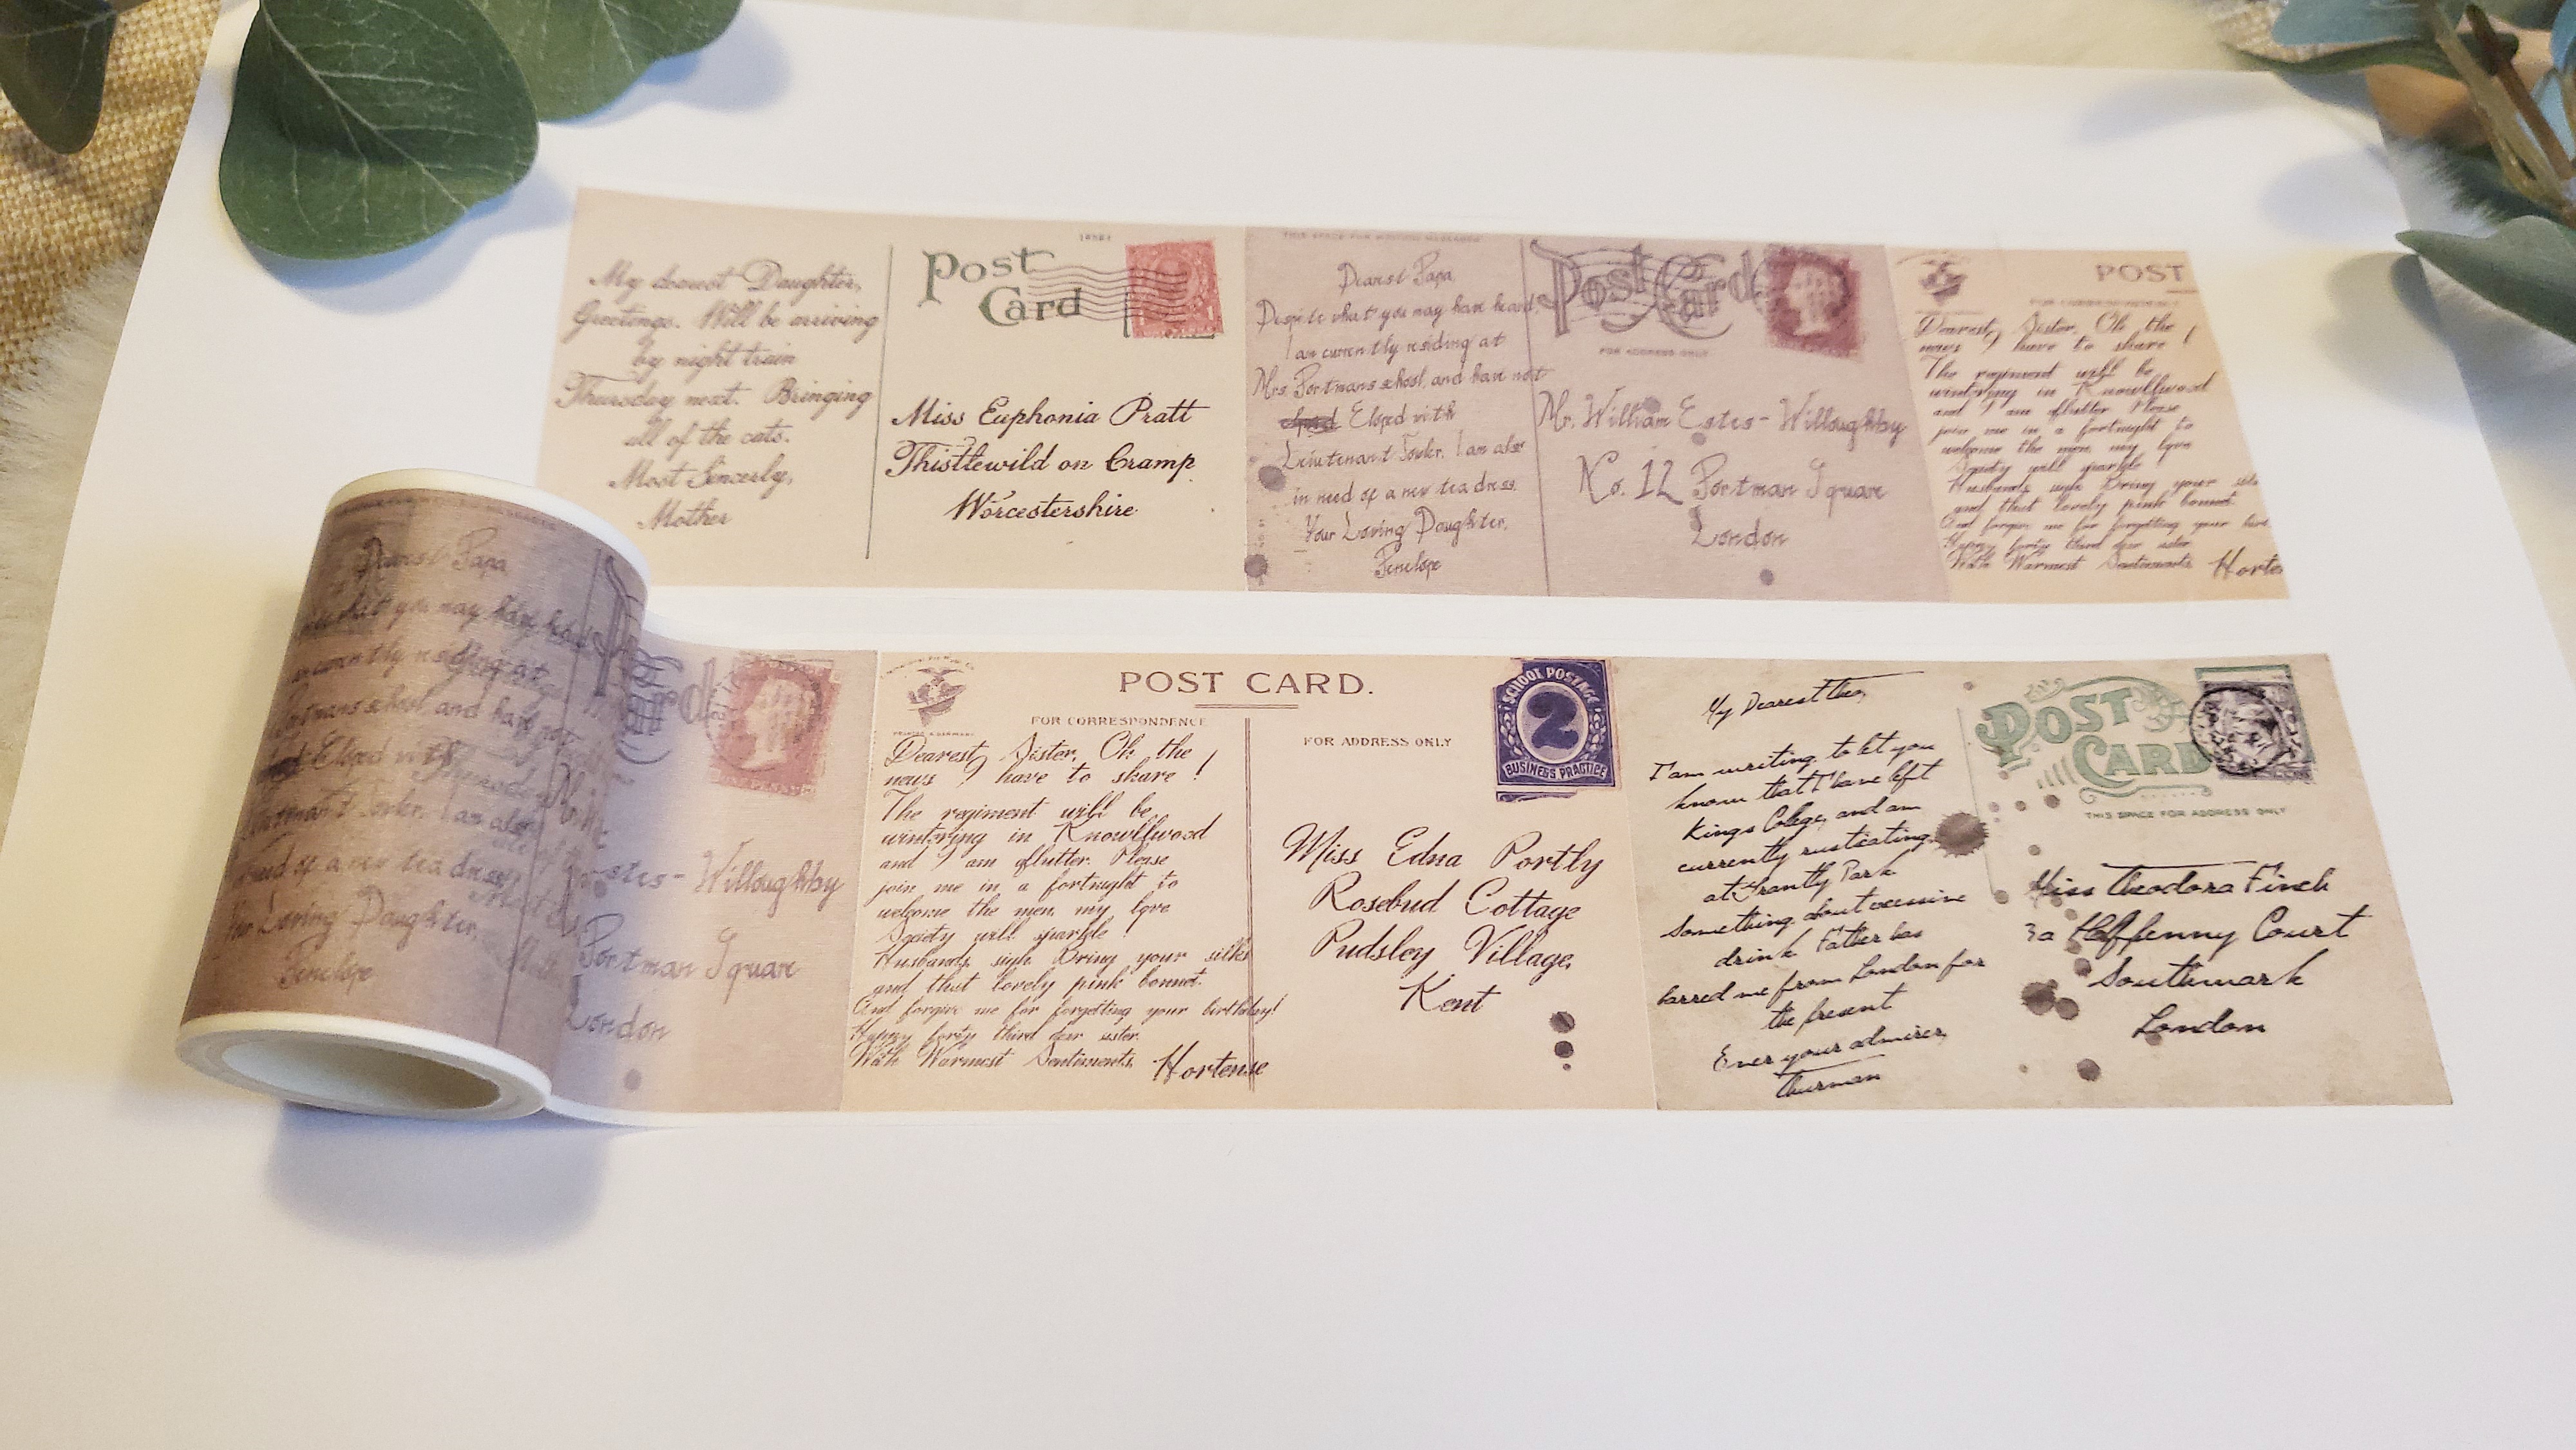 My dearest Daughter,
Greetings. Will be arriving
by night train
Thursday next. Bringing
all of the cats.
Most Sincerly,
Mother
Post
Card
Miss Euphonia Pratt
Thistlewild on Cramp
Worcestershire
THIS SPACE FOR WRITING MESSAGES
Dearest Papa
Despite what you may have heard,
I am currently residing at
Mrs. Portmans school, and have not
Eloped with
Lieutenant Fowler. I am also
in need of a new tea dress.
Your Loving Daughter,
Penelope
Post Card
FOR ADDRESS ONLY
Mr. William Estes-Willoughby
No. 12 Portman Square
London
POST
FOR CORRESPONDENCE
Dearest Sister, Oh the
news I have to share!
The regiment will be
wintering in Knowllwood
and I am aflutter. Please
join me in a fortnight to
welcome the men, my love
Society will sparkle!
Husbands sigh Bring your silks
and that lovely pink bonnet.
And forgive me for forgetting your birt
Happy forty third dear sister
With Warmest Sentiments,
Horte
Dearest Papa
what you may have heard
currently residing at
Portmans school, and have not
Eloped with
I am also
need of a new tea dress
Your Loving Daughter,
Penelope
rd
Estes-Willoughby
Portman Square
London
POST CARD.
FOR CORRESPONDENCE
Dearest Sister, Oh the
news I have to share!
The regiment will be
wintering in Knowllwood
and I am aflutter. Please
join me in a fortnight to
welcome the men, my love
Society will sparkle!
Husbands sigh Bring your silks
and that lovely pink bonnet.
And forgive me for forgetting your birthday!
Happy forty third dear sister.
With Warmest Sentiments,
Hortense
FOR ADDRESS ONLY
SCHOOL POSTAGE
2
BUSINESS PRACTICE
Miss Edna Portly
Rosebud Cottage
Pudsley Village,
Kent
My Dearest Theo,
I am writing to let you
know that I have left
Kings Colege, and am
currently rusticating
at Grantly Park
Something about excessive
drink. Father has
barred me from London for
the present
Ever your admirer,
Thurman
POST
CARD
THIS SPACE FOR ADDRESS ONLY
Miss Theodora Finch
3a Halfpenny Court
Southwark
London